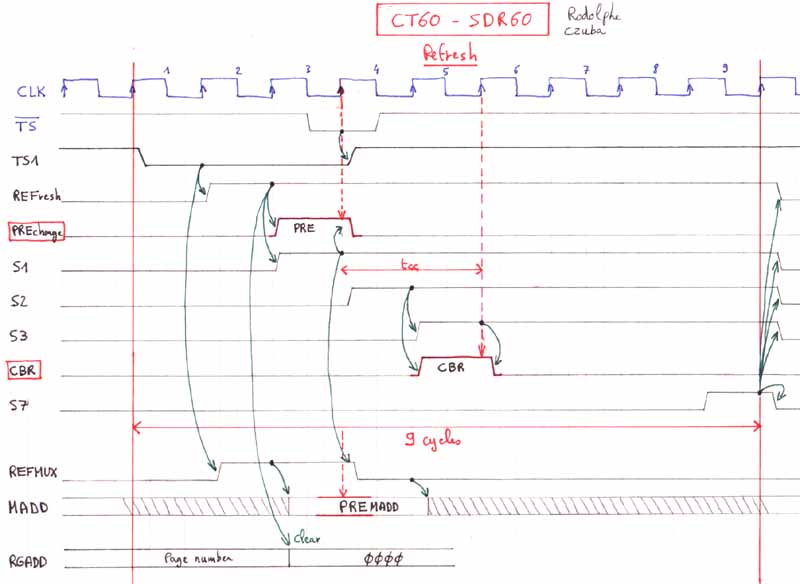 CT60 - SDR60
Rodolphe
Czuba
Refresh
1 2 3 4 5 6 7 8 9
CLK
TS
TS1
REFresh
PREcharge
PRE
S1
tcc
S2
S3
CBR
CBR
S7
9 cycles
REFMUX
MADD
PREMADD
clear
RGADD
Page number
φφφφ